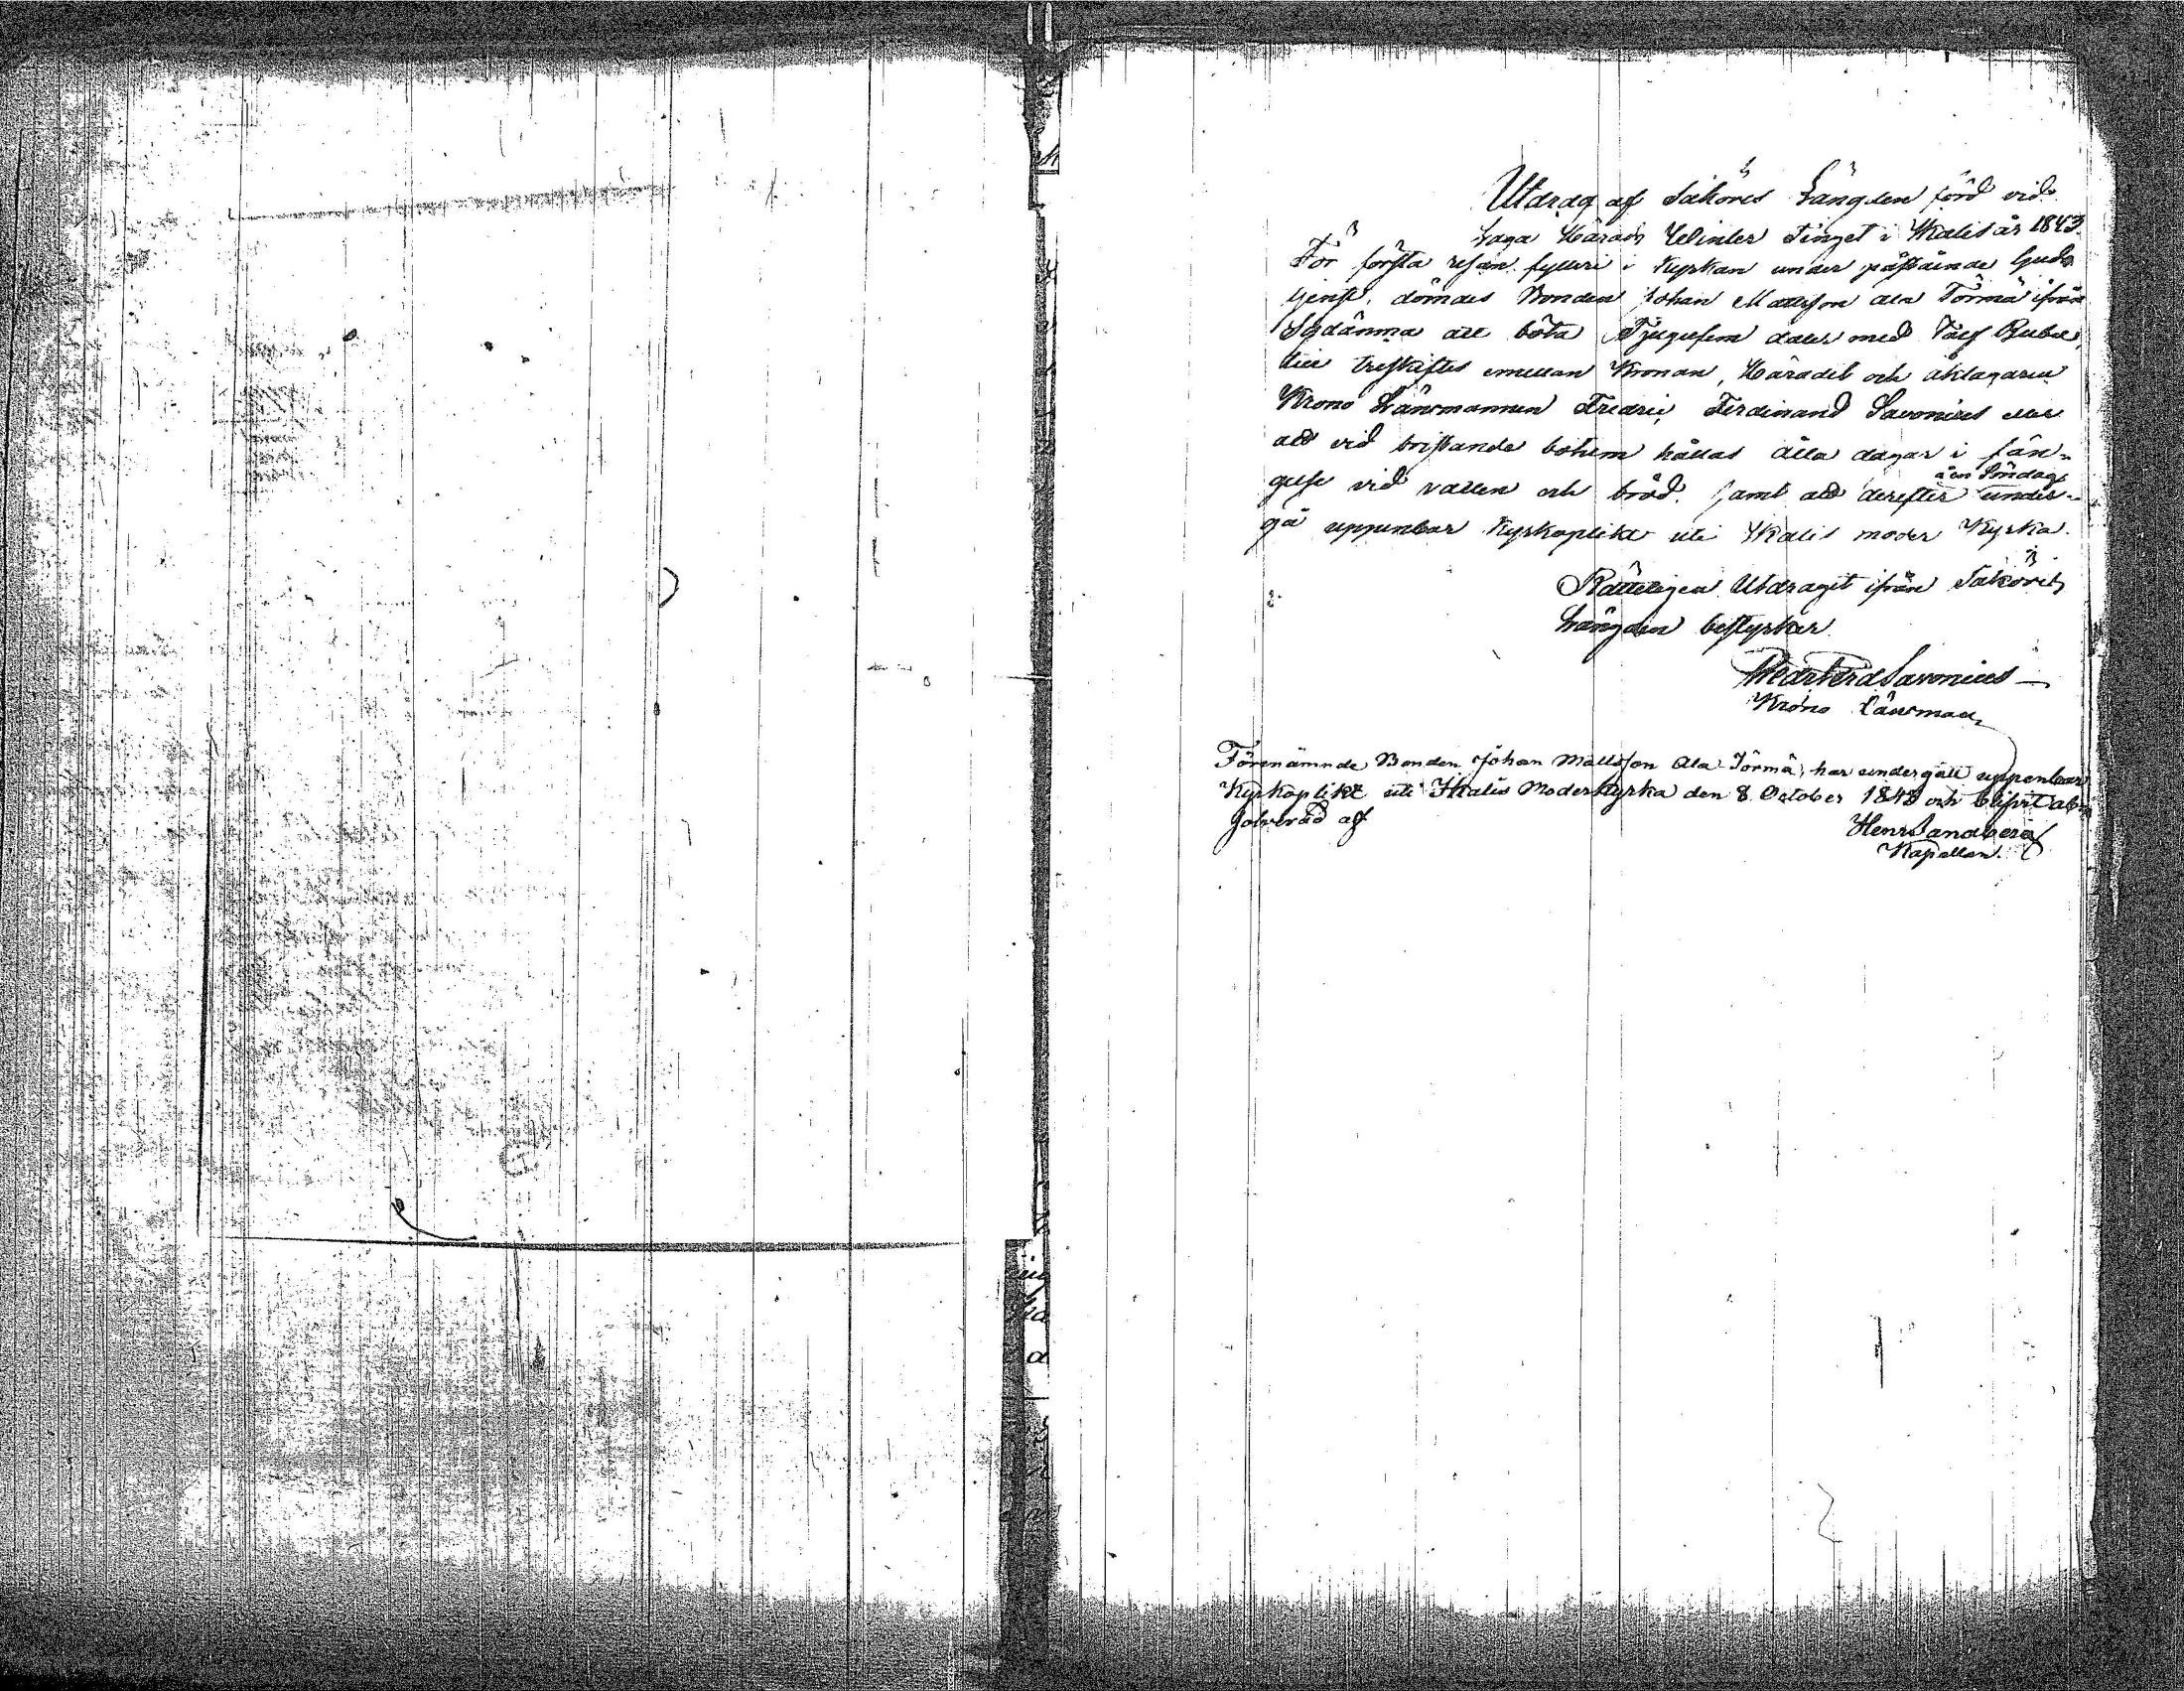 Utdrag af Saköres Längden förd vid
Laga Härads Winter Tinget i Ikalis år 1843.
För första resan fylleri i Kyrkan under påstående Guds
tjenst, dömdes Bonden Johan Mattsson Ala Törmä ifrån
att böta Tjugufem daler med Tolf Rubel,
till treskiftes emellan Kronan, Häradet och åklagaren
Krono Länsmannen Fredric Ferdinand Savonius eller
att vid bristande botum hållas åtta dagar i fän-
gelse vid vatten och bröd. samt att derefter
en Söndag
under-
gå uppenbar Kyrkoplikt uti Ikalis moder Kyrka.
Rätteligen Utdraget ifrån Saköres
Längden bestyrker
Fredr Ferd Savonius
Krono Länsman
Förenämnde Bonden Johan Mattsson Ala Törmä, har undergått uppenbar
Kyrkoplikt uti Ikalis Moderkyrka den 8 October 1843 och blifvit ab-
solverad af
Henr Sandberg
Kapellan.